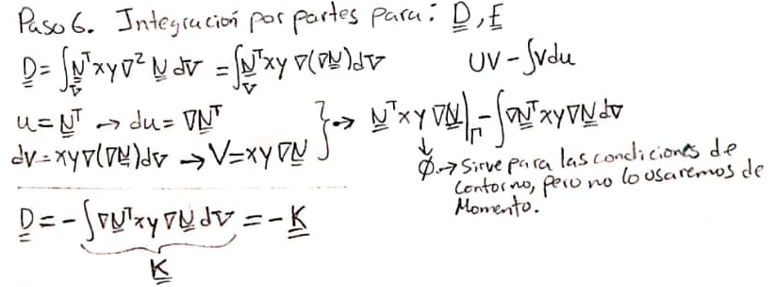 Paso 6. Integración por partes para: D, E
D = ∫_V N^T xy ∇² N dV = ∫_V N^T xy ∇(∇N) dV    UV - ∫Vdu
u = N^T → du = ∇N^T
dv = xy ∇(∇N) dV → V = xy ∇N } → N^T xy ∇N |_Γ - ∫ ∇N^T xy ∇N dV
↓
Ø → Sirve para las condiciones de
Contorno, pero no lo usaremos de
Momento.
D = - ∫ ∇N^T xy ∇N dV = - K
K